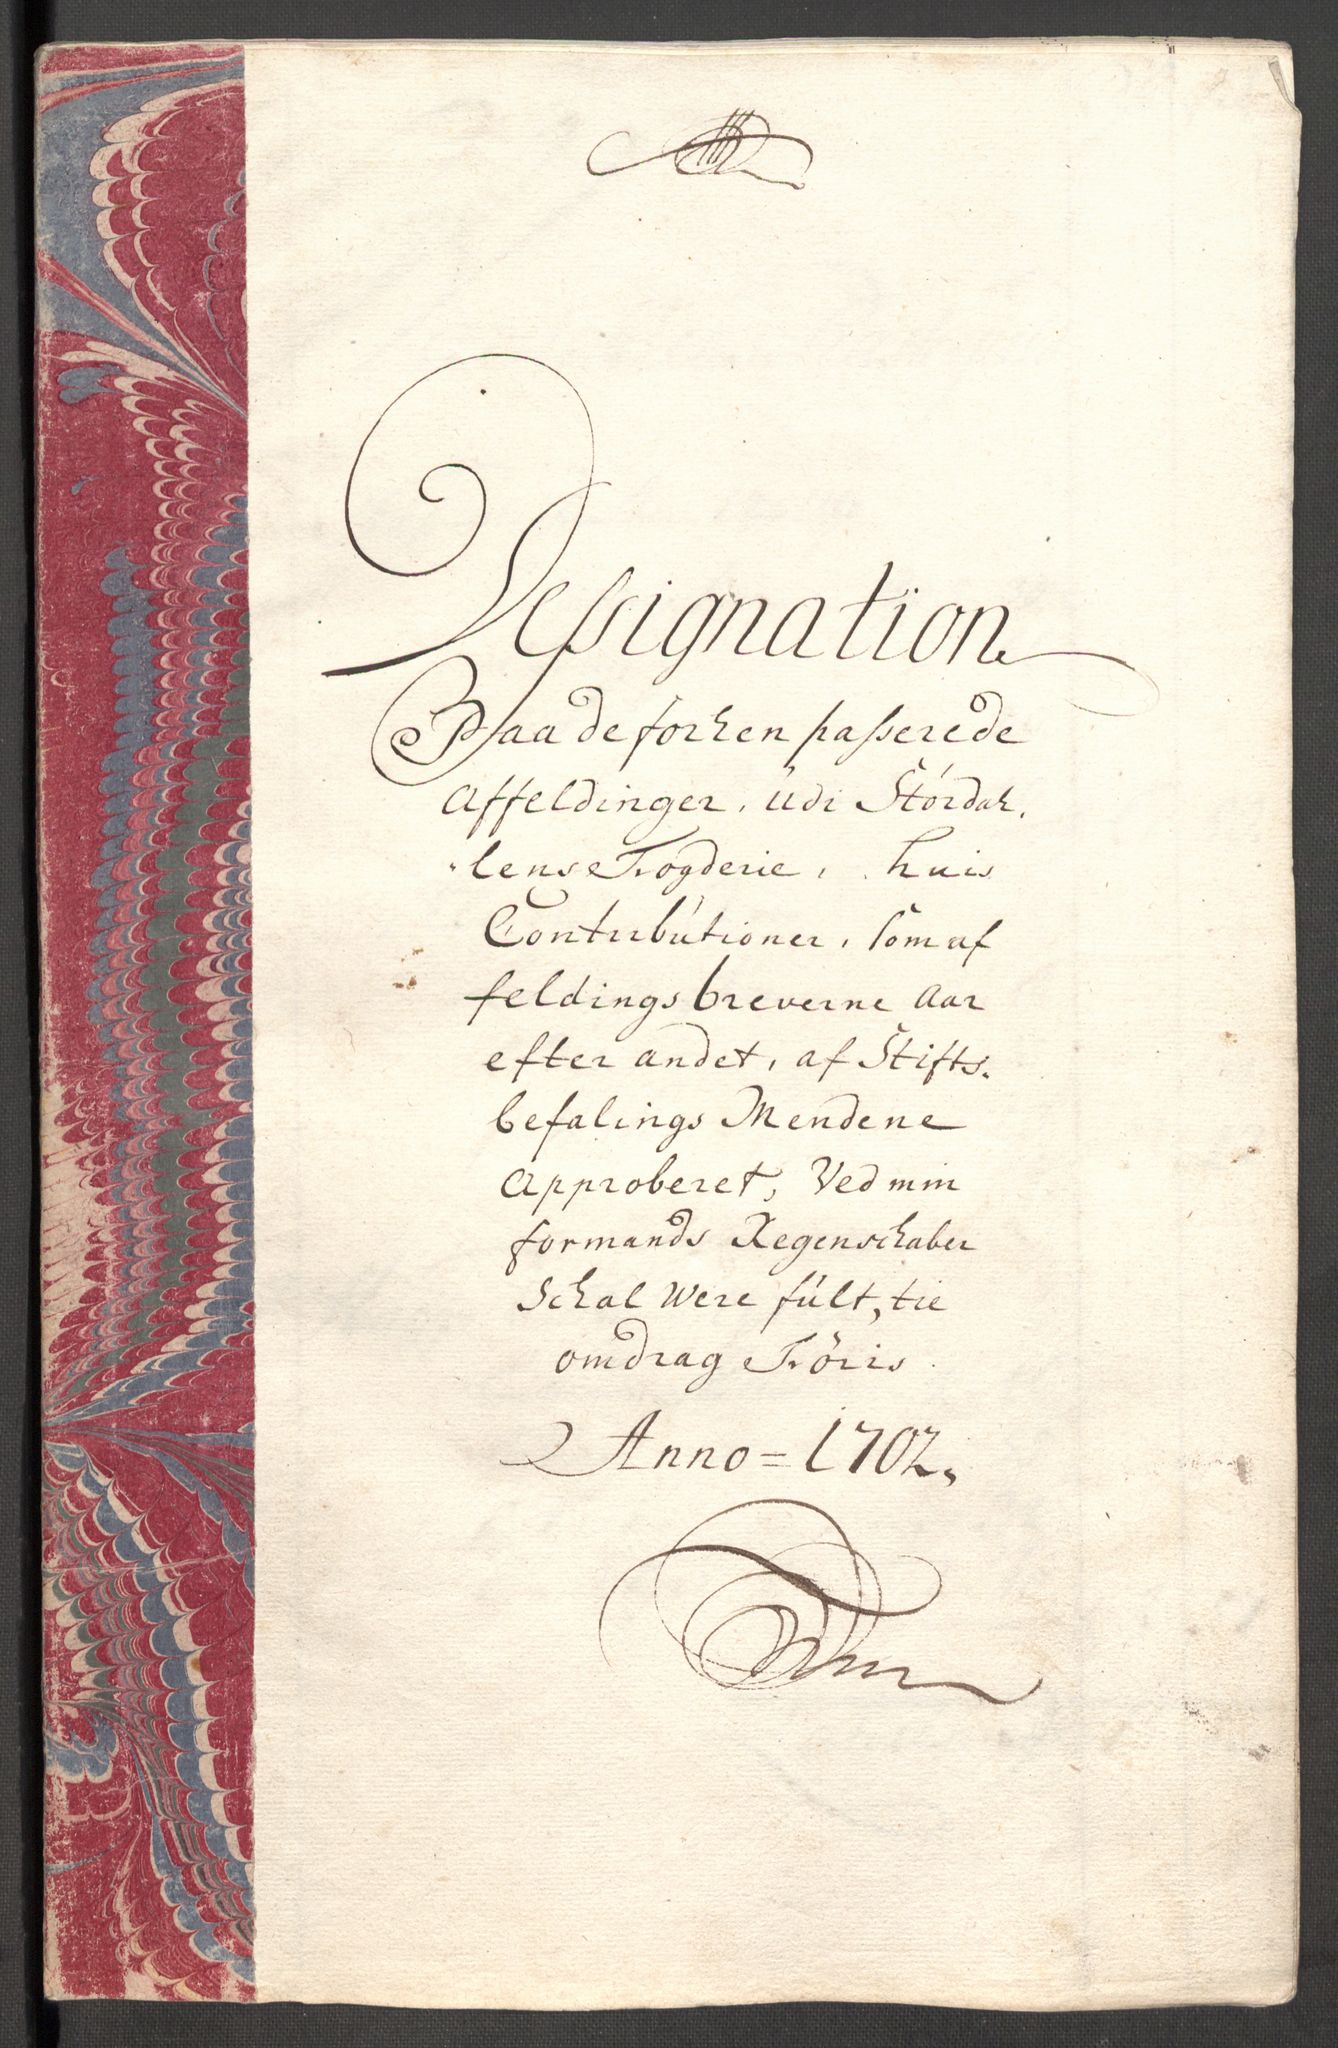 Dessignation
Paa de forhen passerede
Affeldinger, udi Stördah,
lens Fogderie, huis
Contributioner, som af
feldings breverne Aar
efter andet, af Stifts,
befalings Mendene
Approberet, Ved min
formands Regenschaber
Schal Were fült,
omdrag
Anno = 1702,